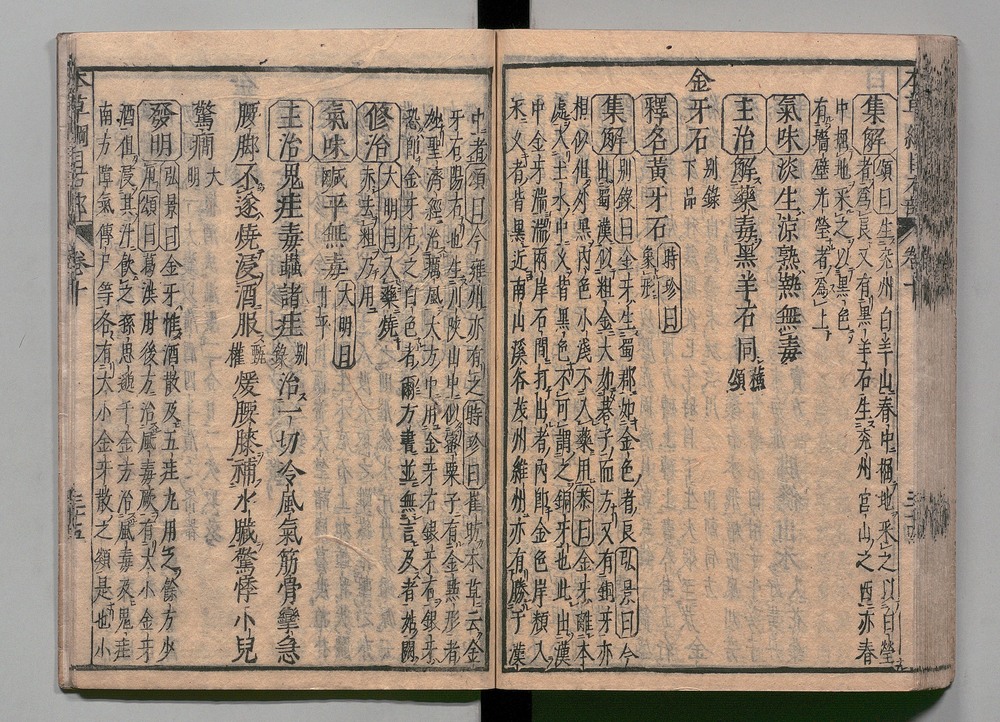 集解 頌曰生兖州白羊山春中掘地采之以白瑩
者爲良又有黑羊石生兖州宮山之西亦春
中掘地采之以黑色
有牆壁光瑩者爲上
氣味淡生涼熟熱無毒
主治解藥毒黑羊石同蘇頌
金牙石 别錄下品
釋名黃牙石 時珍曰象形
集解 别錄曰金牙生蜀郡如金色者良弘景曰今
出蜀漢似粗金大如碁子而方又有銅牙亦
相似但外黑内色小淺不入藥用恭曰金牙離本
處入土水中久皆黑色不可謂之銅牙也此出漢
中金牙湍湍兩岸石間打出者内卽金色岸頹入
水久者皆黑近南山溪谷茂州維州亦有勝于漢
中者頌曰今雍州亦有之時珍曰崔昉本草云金
牙石陽石也生川陜山中似蜜栗子有金㸃形者
妙聖濟經治癘風大方中用金牙石銀牙石銀牙
恐卽金牙石之白色者爾方書並無言及者姑闕
修治 大明曰入藥燒
赤去粗乃用
氣味鹹平無毒 大明曰甘平
主治鬼疰毒蠱諸疰别錄治一切冷風氣筋骨攣急
腰脚不遂燒浸酒服甄權煖腰膝補水臟驚悸小兒
驚癇大明
發明 弘景曰金牙惟酒散及五疰丸用之餘方少
用頌曰葛洪肘後方治風毒厥有大小金牙
酒但浸其汁飲之孫思邈千金方治風毒及鬼疰
南方瘴氣傳尸等各有大小金牙散之類是也小
本草綱目石部 卷十